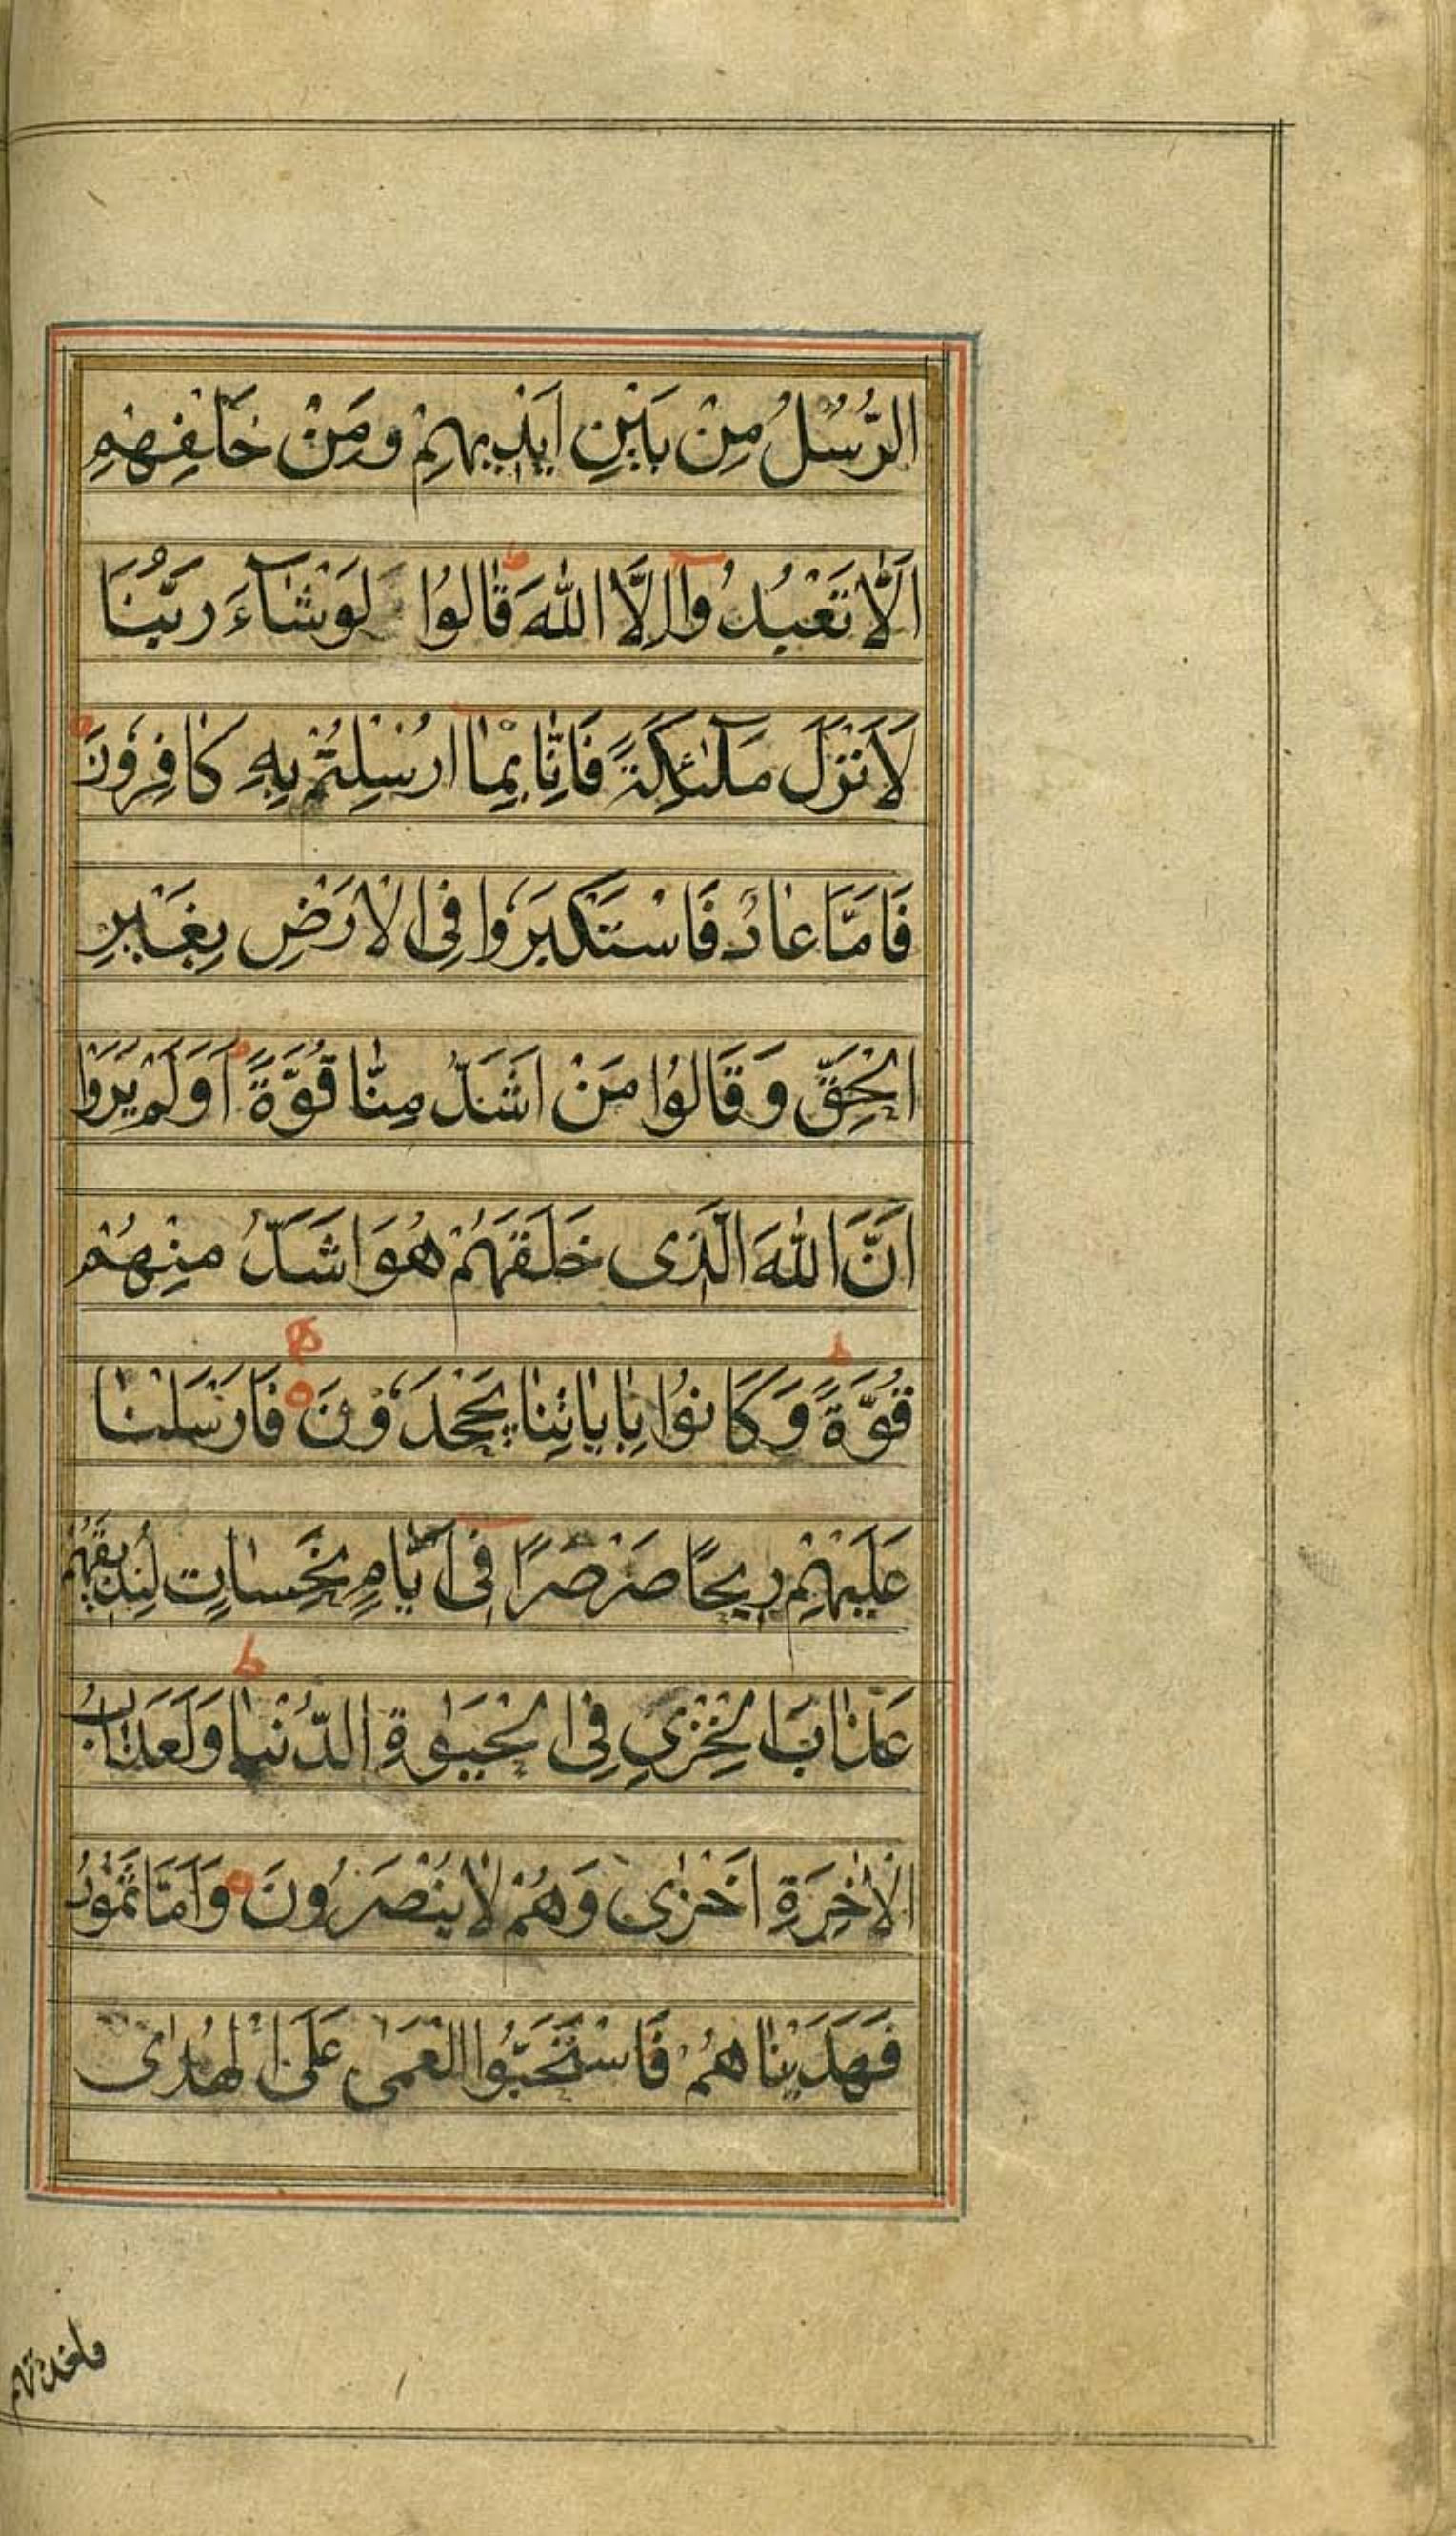 الرُّسُلُ مِنْ بَيْنِ اَيْدِيهِمْ وَمَنْ خَلْفِهِمِ
اَلَّا تَعْبُدُوٓا اِلَّا اللّٰهَ ط قَالُوْا لَوْ شَآءَ رَبُّنَا
لَاَنْزَلَ مَلٰٓئِكَةً فَاِنَّا بِمَآ اُرْسِلْتُمْ بِهِ كَافِرُوْنَ
فَاَمَّا عَادٌ فَاسْتَكْبَرُوا فِى الْاَرْضِ بِغَيْرِ
الْحَقِّ وَقَالُوْا مَنْ اَشَدُّ مِنَّا قُوَّةً ط اَوَلَمْ يَرَوْا
اَنَّ اللّٰهَ الَّذِى خَلَقَهُمْ هُوَ اَشَدُّ مِنْهُمْ
قُوَّةً ط وَكَانُوْا بِاٰيَاتِنَا يَجْحَدُوْنَ فَاَرْسَلْنَا
عَلَيْهِمْ رِيْحًا صَرْصَرًا فِىٓ اَيَّامٍ نَحِسَاتٍ لِنُذِيقَهُمْ
عَذَابَ الْخِزْىِ فِى الْحَيٰوةِ الدُّنْيَا ط وَلَعَذَابُ
الْاٰخِرَةِ اَخْزٰى وَهُمْ لَا يُنْصَرُوْنَ وَاَمَّا ثَمُوْدُ
فَهَدَيْنَاهُمْ فَاسْتَحَبُّوا الْعَمَى عَلَى الْهُدٰى
فاخذتهم